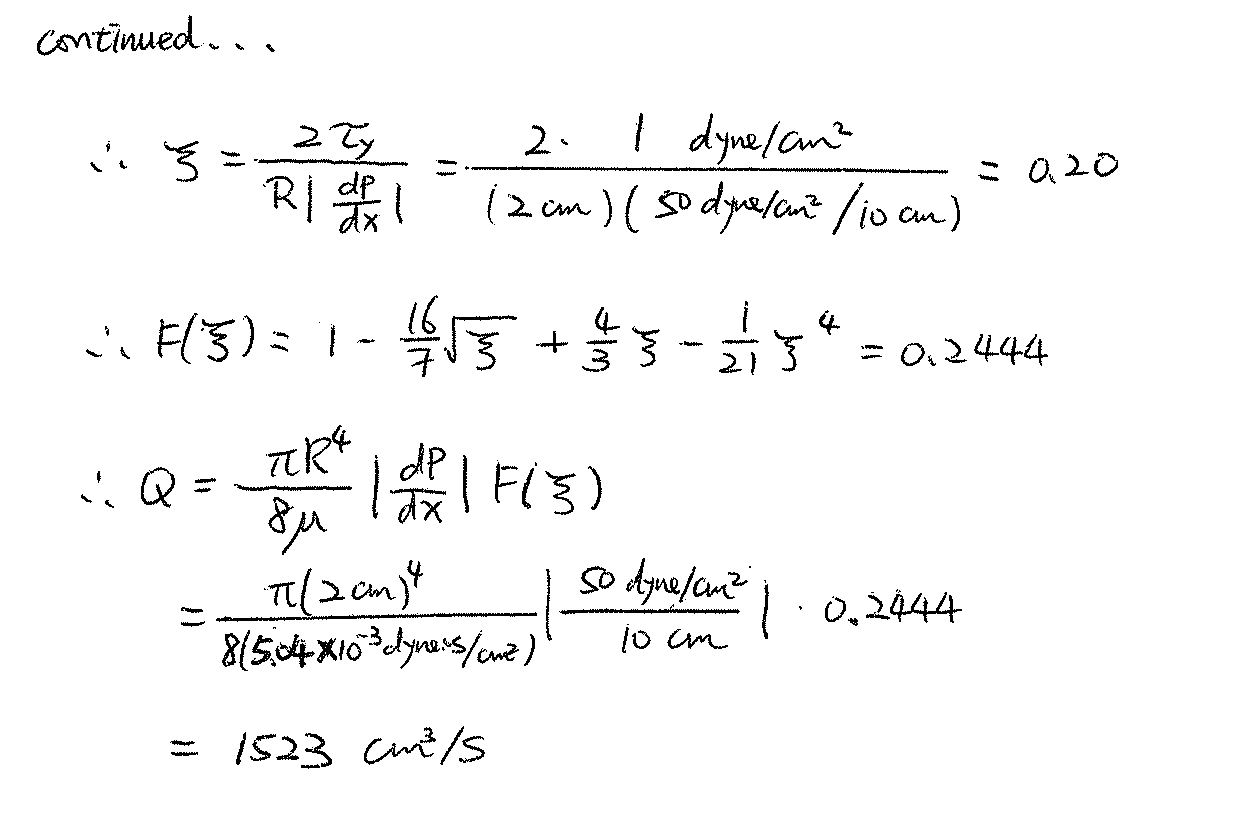 continued...
∴ ξ = 2τy / R|dP/dx| = 2 · 1 dyne/cm² / (2 cm)(50 dyne/cm² / 10 cm) = 0.20
∴ F(ξ) = 1 - 16/7 √ξ + 4/3 ξ - 1/21 ξ⁴ = 0.2444
∴ Q = πR⁴ / 8μ |dP/dx| F(ξ)
= π(2 cm)⁴ / 8(5.04×10⁻³ dyne·s/cm²) |50 dyne/cm² / 10 cm| · 0.2444
= 1523 cm³/s